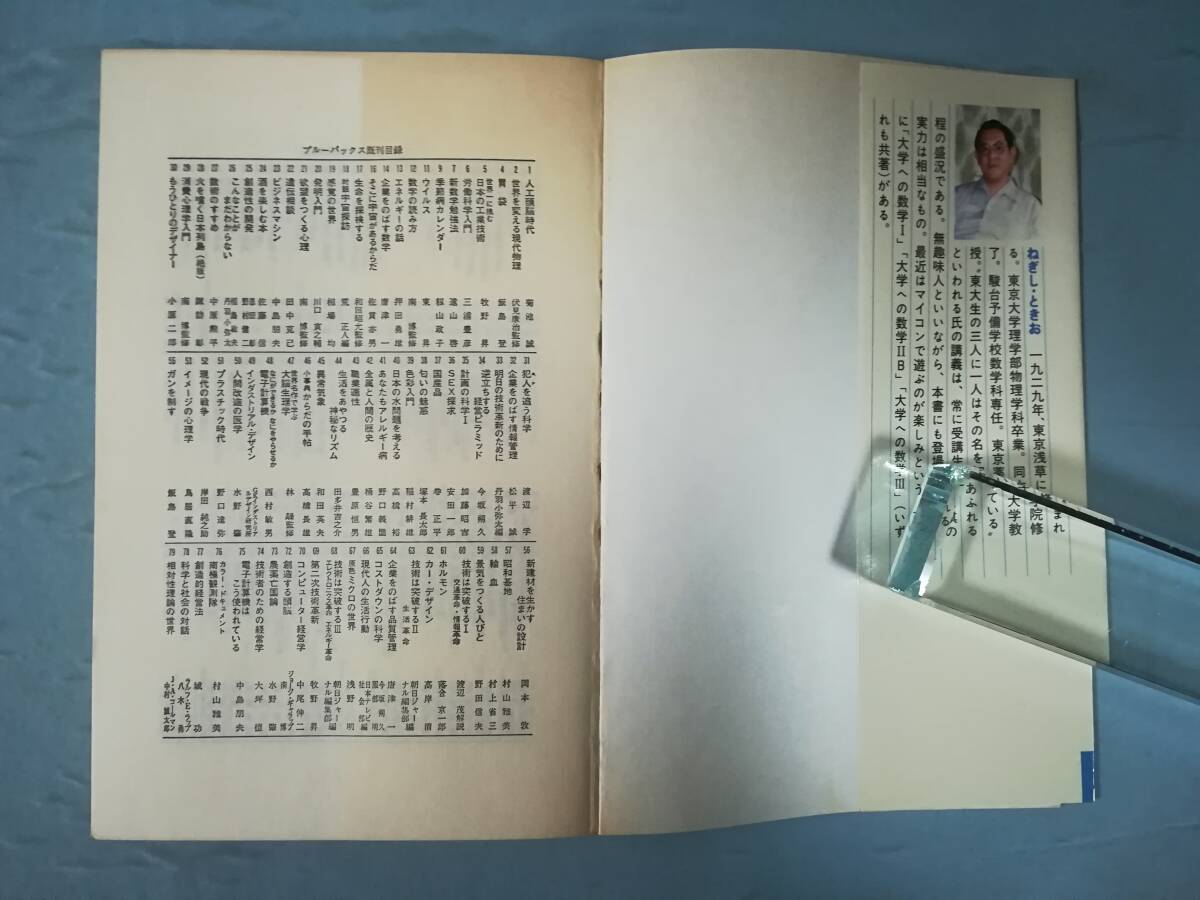 ねぎし・ときお 一九二九年、東京浅草に まれ
る。東京大学理学部物理学科卒業。同 院修
了。駿台予備学校数学科専任。東京薬 大学教
授。"東大生の三人に一人はその名を ている。"
といわれる氏の講義は、常に受講生 あふれる
程の盛況である。無趣味人といいながら、本書にも登場 の
実力は相当なもの。最近はマイコンで遊ぶのが楽しみという
に「大学への数学Ⅰ」「大学への数学ⅡB」「大学への数学Ⅲ」(いず
れも共著)がある。
ブルーバックス既刊目録
1 人工頭脳時代 菊池 誠
2 世界を変える現代物理 伏見康治監修
4 胃袋 飯島 登
5 世界一に挑む 日本の工業技術 牧野 昇
6 労働科学入門 三浦豊彦
7 新数学勉強法 遠山 啓
9 季節病カレンダー 籾山政子
11 ウイルス 東 昇
12 数学の読み方 南 博監修
13 エネルギーの話 押田勇雄
14 企業をのばす数字 唐津 一
16 そこに宇宙があるからだ 佐貫亦男
17 生命を探検する 和田昭允監修
18 対談 宇宙探訪 荒 正人編
19 感覚の世界 相場 均
20 発明入門 川口寅之輔
21 欲望をつくる心理 南 博監修
22 遺伝相談 田中克己
23 ビジネスマシン 中島朋夫
24 酒を楽しむ本 佐藤 信
25 創造性の開発
26 こんなことがまだわからない 丹羽小弥太
27 数術のすすめ 中原勲平
28 火を噴く日本列島(絶版) 諏訪 彰
29 消費心理学入門 南 博監修
30 もうひとりのデザイナー 小原二郎
31 犯人を追う科学 渡辺 孚
32 企業をのばす情報管理 松平 誠
33 明日の技術革新のために 丹羽小弥太編
34 逆立ちする経営ピラミッド 今坂朔久
35 計画の科学Ⅰ 加藤昭吉
36 SEX探求 安田一郎
37 国産品 巻 正平
38 匂いの魅惑 塚本長太郎
39 色彩入門 稲村耕雄
40 日本の水問題を考える 高橋 裕
41 あなたもアレルギー病 野口義圀
42 金属と人間の歴史 桶谷繁雄
43 職業適性 豊原恒男
44 生活をあやつる神秘なリズム 田多井吉之介
45 異常気象 和田英夫
46 小事典 からだの手帖 高橋長雄
47 世界名作で学ぶ 大脳生理学 林 髞監修
48 電子計算機 なにができるかなにをやらせるか 西村敏男
49 インダストリアル・デザイン GKインダストリアルデザイン研究所
50 人間改造の医学 水野 肇
51 プラスチック時代 野口達弥
52 現代の戦争 岸田純之助
53 イメージの心理学 鳥居直隆
55 ガンを制す 飯島 登
56 新建材を生かす住まいの設計 岡本 敦
57 昭和基地 村山雅美
58 輸血 村上省三
59 景気をつくる人びと 野田信夫
60 技術は突破するⅠ 交通革命・情報革命 渡辺 茂解説
61 ホルモン 落合京一郎
62 カー・デザイン 高岸 清
63 技術は突破するⅡ 生活革命 朝日ジャーナル編集部編
64 企業をのばす品質管理 唐津 一
65 コストダウンの科学 今坂朔久
66 現代人の生活行動 日本テレビ社会部編
67 原色 ミクロの世界 浅野 明
68 技術は突破するⅢ エレクトロニクス革命 エネルギー革命 朝日ジャーナル編集部編
69 第二次技術革新 牧野 昇
70 コンピューター経営学 中尾伸二
72 創造する頭脳 ジョージ・ギャラップ 南 博
73 農薬亡国論 水野 肇
74 技術者のための経営学 大坪 檀
75 電子計算機はこう使われている 中島朋夫
76 カラー・ドキュメント 南極観測隊 村山雅美
77 創造的経営法 城 功
78 科学と社会の対話 ラルフ・E・ラップ 八木 勇
79 相対性理論の世界 J・A・コールマン 中村誠太郎